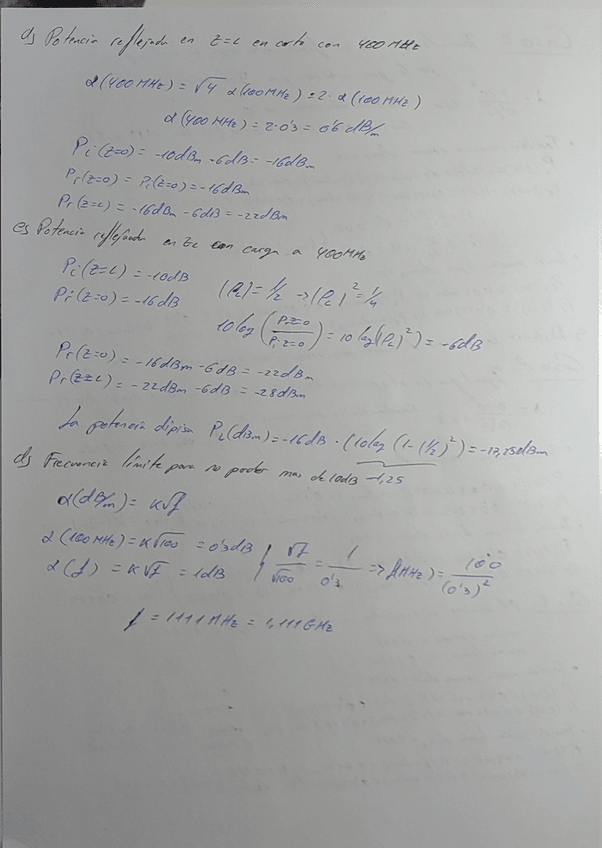 d) Potencia reflejada en Z=L en corto con 400MHz
α(400MHz) = √4 α(100MHz) = 2 · α(100MHz)
α(400MHz) = 2·0'3 = 0'6 dB/m
Pi(z=0) = -10dBm -6dB = -16dBm
Pr(z=0) = Pi(z=0) = -16dBm
Pr(z=L) = -16dBm -6dB = -22dBm
e) Potencia reflejada en ZL con carga a 400MHz
Pi(z=L) = -10dB
Pi(z=0) = -16dB |ρL| = 1/2 → |ρL|² = 1/4
10log(Pr z=0 / Pi z=0) = 10 log(|ρL|²) = -6dB
Pr(z=0) = -16dBm -6dB = -22dBm
Pr(z=L) = -22dBm -6dB = -28dBm
La potencia dipisa PL(dBm) = -16dB · (10log (1-(1/2)²) = -17,25dBm
-1,25
d) Frecuencia límite para no perder mas de 10dB
α(dB/m) = K√f
α(100MHz) = K√100 = 0'3dB
α(f) = K√f = 1dB } √f/√100 = 1/0'3 => f(MHz) = 100/(0'3)²
f = 1111MHz = 1,111GHz